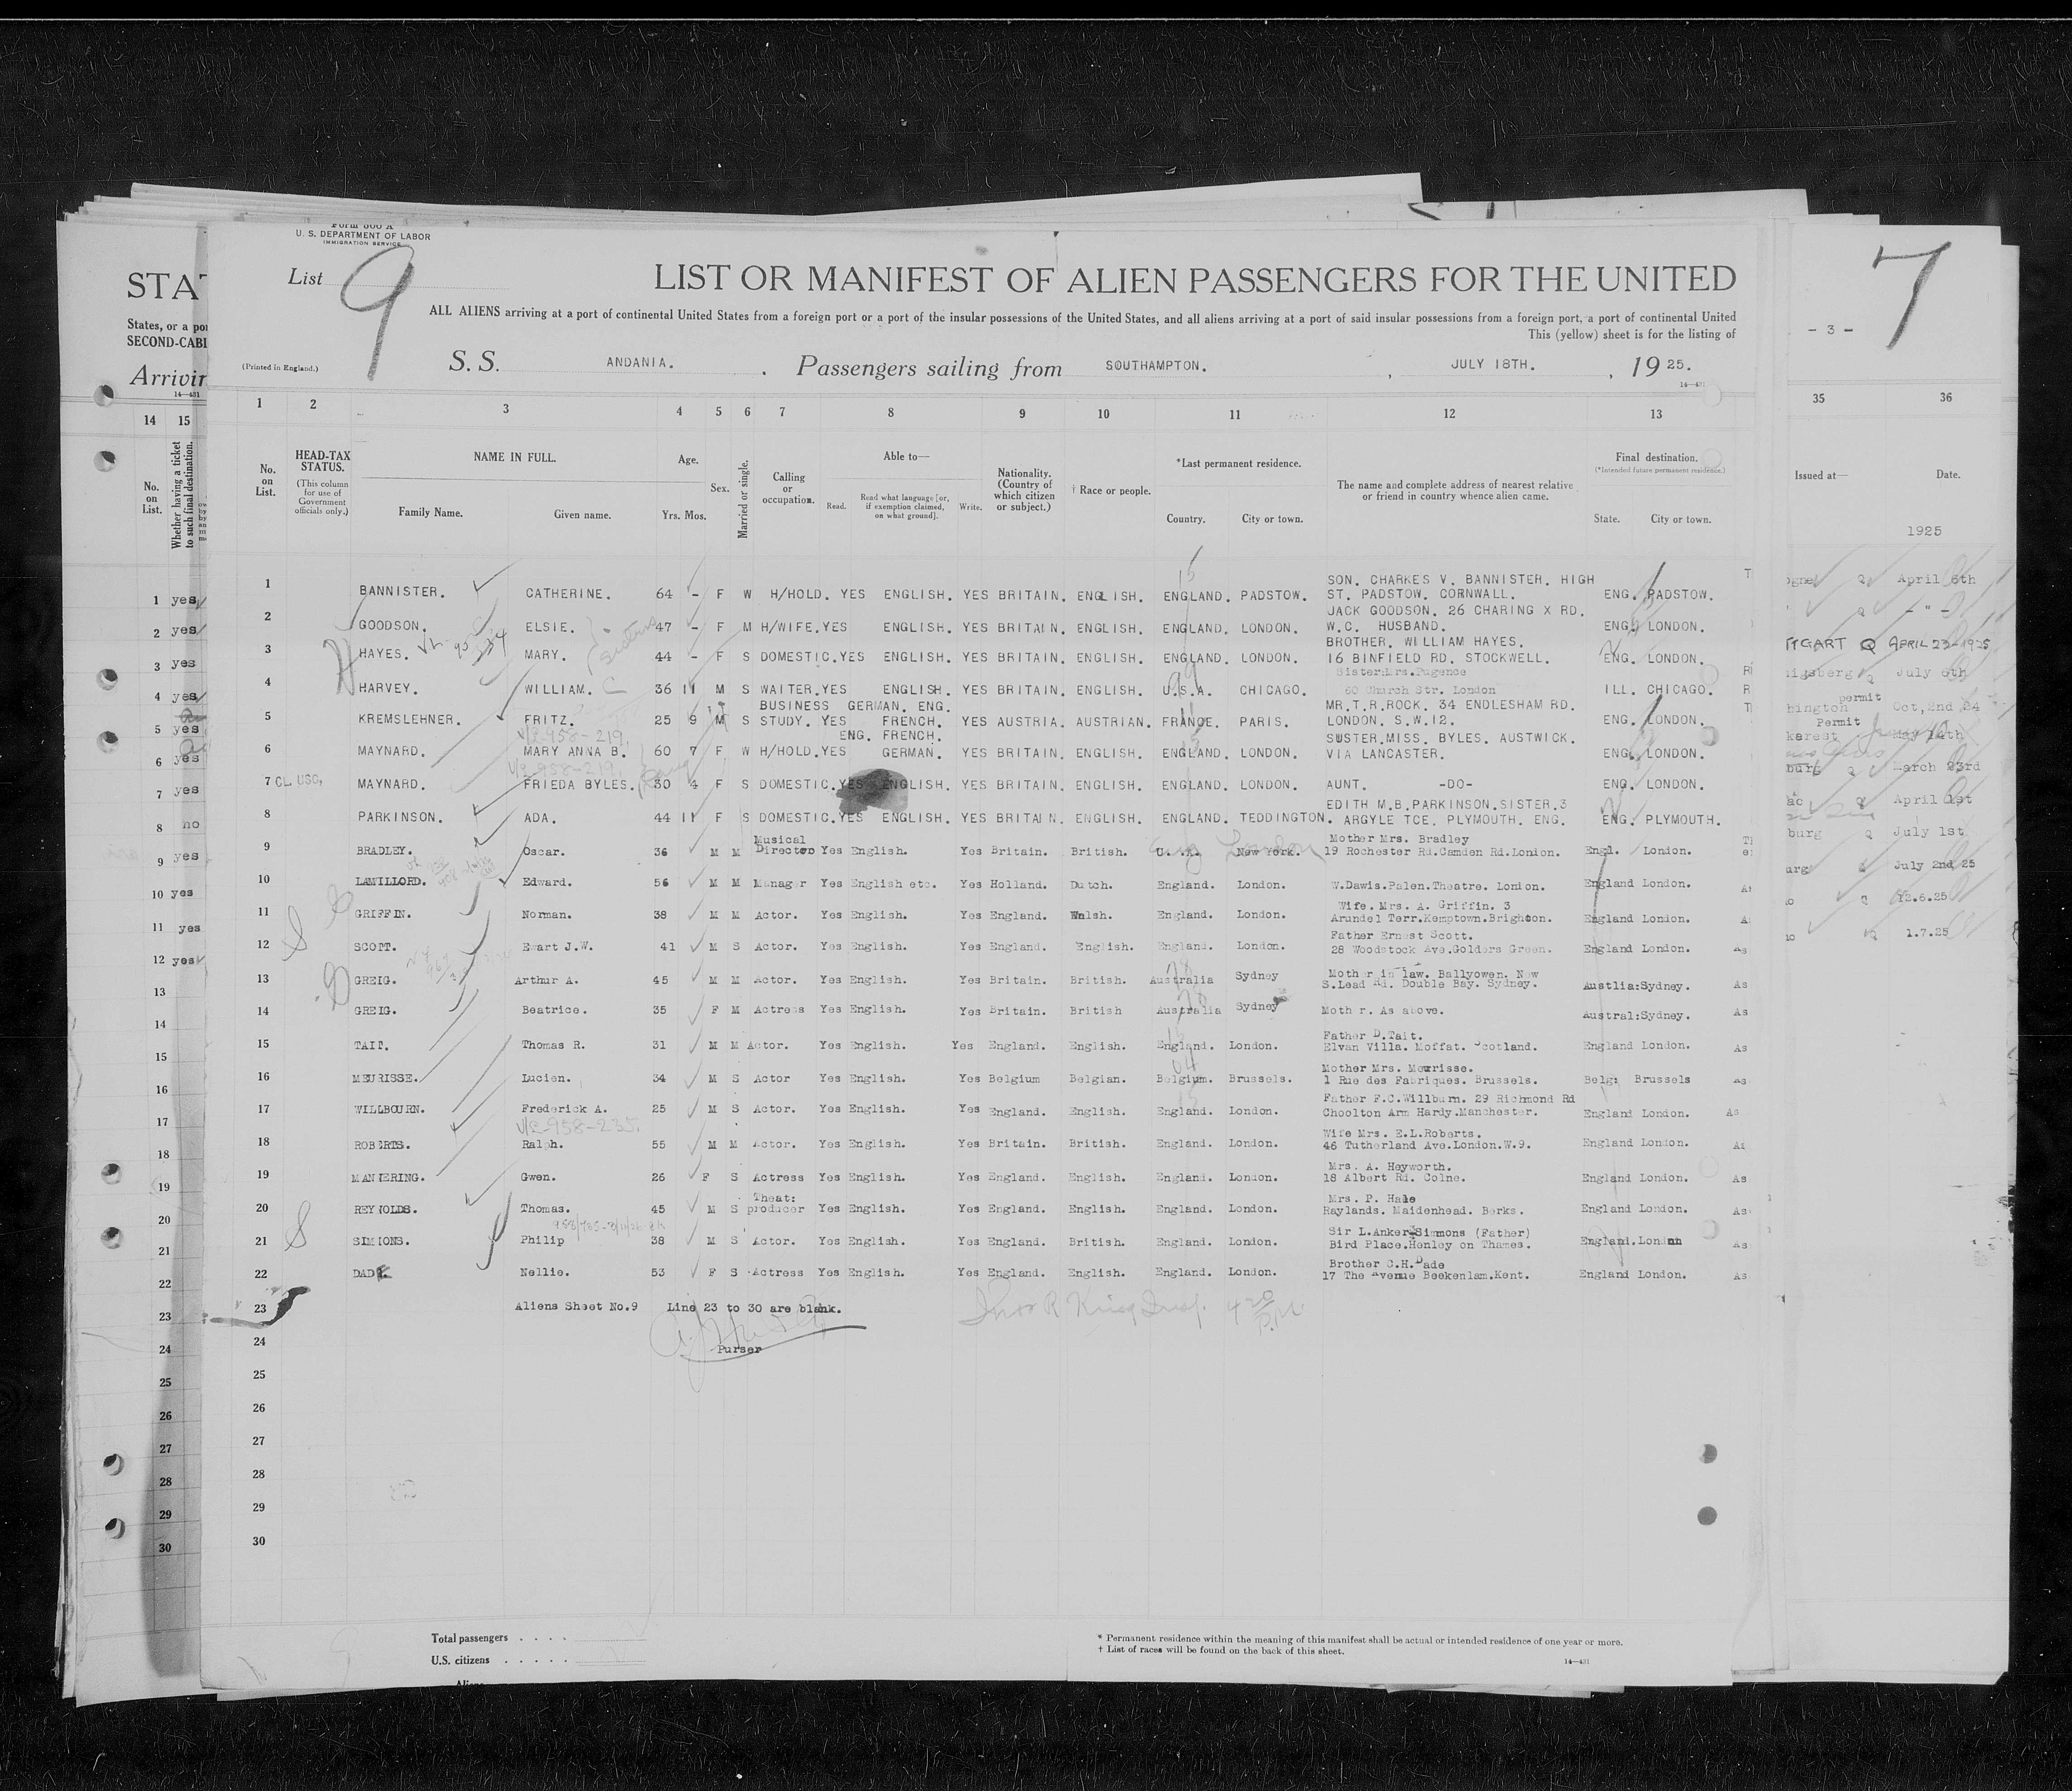 Form 500 A
U. S. DEPARTMENT OF LABOR
IMMIGRATION SERVICE
List 9
LIST OR MANIFEST OF ALIEN PASSENGERS FOR THE UNITED
ALL ALIENS arriving at a port of continental United States from a foreign port or a port of the insular possessions of the United States, and all aliens arriving at a port of said insular possessions from a foreign port, a port of continental United
This (yellow) sheet is for the listing of
(Printed in England.)
S. S. ANDANIA. . Passengers sailing from SOUTHAMPTON. , JULY 18TH. , 19 25.
14—431
1 2 3 4 5 6 7 8 9 10 11 12 13
No. on List.
HEAD-TAX STATUS.
(This column for use of Government officials only.)
NAME IN FULL.
Family Name. Given name.
Age.
Yrs. Mos.
Sex.
Married or single.
Calling or occupation.
Able to—
Read. Read what language [or, if exemption claimed, on what ground]. Write.
Nationality. (Country of which citizen or subject.)
† Race or people.
*Last permanent residence.
Country. City or town.
The name and complete address of nearest relative or friend in country whence alien came.
Final destination.
(*Intended future permanent residence.)
State. City or town.
1 BANNISTER. CATHERINE. 64 - F W H/HOLD. YES ENGLISH. YES BRITAIN. ENGLISH. ENGLAND. PADSTOW. SON. CHARKES V. BANNISTER. HIGH ST. PADSTOW. CORNWALL. ENG. PADSTOW.
2 GOODSON. ELSIE. 47 - F M H/WIFE. YES ENGLISH. YES BRITAIN. ENGLISH. ENGLAND. LONDON. JACK GOODSON. 26 CHARING X RD. W.C. HUSBAND. ENG. LONDON.
3 HAYES. MARY. 44 - F S DOMESTIC. YES ENGLISH. YES BRITAIN. ENGLISH. ENGLAND. LONDON. BROTHER. WILLIAM HAYES. 16 BINFIELD RD. STOCKWELL. ENG. LONDON.
4 HARVEY. WILLIAM. C 36 11 M S WAITER. YES ENGLISH. YES BRITAIN. ENGLISH. U.S.A. CHICAGO. 60 Church Str. London ILL. CHICAGO.
5 KREMSLEHNER. FRITZ. 25 9 M S BUSINESS STUDY. YES GERMAN. ENG. FRENCH. YES AUSTRIA. AUSTRIAN. FRANCE. PARIS. MR.T.R.ROCK. 34 ENDLESHAM RD. LONDON. S.W.12. ENG. LONDON.
V/L-958-219.
6 MAYNARD. MARY ANNA B. 60 7 F W H/HOLD. YES ENG. FRENCH. GERMAN. YES BRITAIN. ENGLISH. ENGLAND. LONDON. SUSTER.MISS. BYLES. AUSTWICK. VIA LANCASTER. ENG. LONDON.
V/L-958-219.
7 CL. USC, MAYNARD. FRIEDA BYLES. 30 4 F S DOMESTIC. YES ENGLISH. YES BRITAIN. ENGLISH. ENGLAND. LONDON. AUNT. -DO- ENG. LONDON.
8 PARKINSON. ADA. 44 11 F S DOMESTIC. YES ENGLISH. YES BRITAIN. ENGLISH. ENGLAND. TEDDINGTON. EDITH M.B.PARKINSON.SISTER.3 ARGYLE TCE. PLYMOUTH. ENG. ENG. PLYMOUTH.
9 BRADLEY. Oscar. 36 M M Musical Director Yes English. Yes Britain. British. New York. Mother Mrs. Bradley 19 Rochester Rd.Camden Rd.London. Engl. London.
10 Edward. 56 M M Manager Yes English etc. Yes Holland. Dutch. England. London. W.Dawis.Palen.Theatre. London. England London.
11 GRIFFIN. Norman. 38 M M Actor. Yes English. Yes England. Walsh. England. London. Wife. Mrs. A. Griffin. 3 Arundel Terr.Kemptown.Brighton. England London.
12 SCOTT. Ewart J.W. 41 M S Actor. Yes English. Yes England. English. England. London. Father Ernest Scott. 28 Woodstock Ave.Golders Green. England London.
13 GREIG. Arthur A. 45 M M Actor. Yes English. Yes Britain. British. Australia Sydney Mother in law. Ballyowen. New S.Lead Rd. Double Bay. Sydney. Austlia:Sydney.
14 GREIG. Beatrice. 35 F M Actress Yes English. Yes Britain. British Australia Sydney Moth r. As above. Austral:Sydney.
15 TAIT. Thomas R. 31 M M Actor. Yes English. Yes England. English. England. London. Father D.Tait. Elvan Villa. Moffat. Scotland. England London.
16 MEURISSE. Lucien. 34 M S Actor Yes English. Yes Belgium Belgian. Belgium. Brussels. Mother Mrs. Meurisse. 1 Rue des Fabriques. Brussels. Belg: Brussels
17 WILLBOURN. Frederick A. 25 M S Actor. Yes English. Yes England. English. England. London. Father F.C.Willburn. 29 Richmond Rd Choolton Arm Hardy.Manchester. England London.
V/L-958-235.
18 ROBERTS. Ralph. 55 M M Actor. Yes English. Yes Britain. British. England. London. Wife Mrs. E.L.Roberts. 46 Tutherland Ave.London.W.9. England London.
19 MANNERING. Gwen. 26 F S Actress Yes English. Yes England. English. England. London. Mrs. A. Heyworth. 18 Albert Rd. Colne. England London.
20 REYNOLDS. Thomas. 45 M S Theat: producer Yes English. Yes England. English. England. London. Mrs. P. Hale Raylands. Maidenhead. Berks. England London.
21 SIMMONS. Philip 38 M S Actor. Yes English. Yes England. British. England. London. Sir L.Anker-Simmons (Father) Bird Place.Henley on Thames. England.London
22 Nellie. 53 F S Actress Yes English. Yes England. English. England. London. Brother C.H.Dade 17 The Avenue Beekenlam.Kent. England London.
23 Aliens Sheet No.9 Line 23 to 30 are blank.
24 Purser
25
26
27
28
29
30
Total passengers . . . .
U.S. citizens . . . . .
* Permanent residence within the meaning of this manifest shall be actual or intended residence of one year or more.
† List of races will be found on the back of this sheet.
14—431
STAT
States, or a por
SECOND-CABI
Arrivin
14—431
14 15
No. on List.
Whether having a ticket to such final destination.
1 yes
2 yes
3 yes
4 yes
5 yes
6 yes
7 yes
8 no
9 yes
10 yes
11 yes
12 yes
13
14
15
16
17
18
19
20
21
22
23
24
25
26
27
28
29
30
- 3 -
7
35 36
Issued at— Date.
1925
April 6th
- " -
TTGART Q APRIL 23-1925
igsberg July 6th
permit
hington Oct,2nd 24
Permit
karest May 14th
burg March 23rd
April 1st
burg July 1st
July 2nd 25
12.6.25
1.7.25